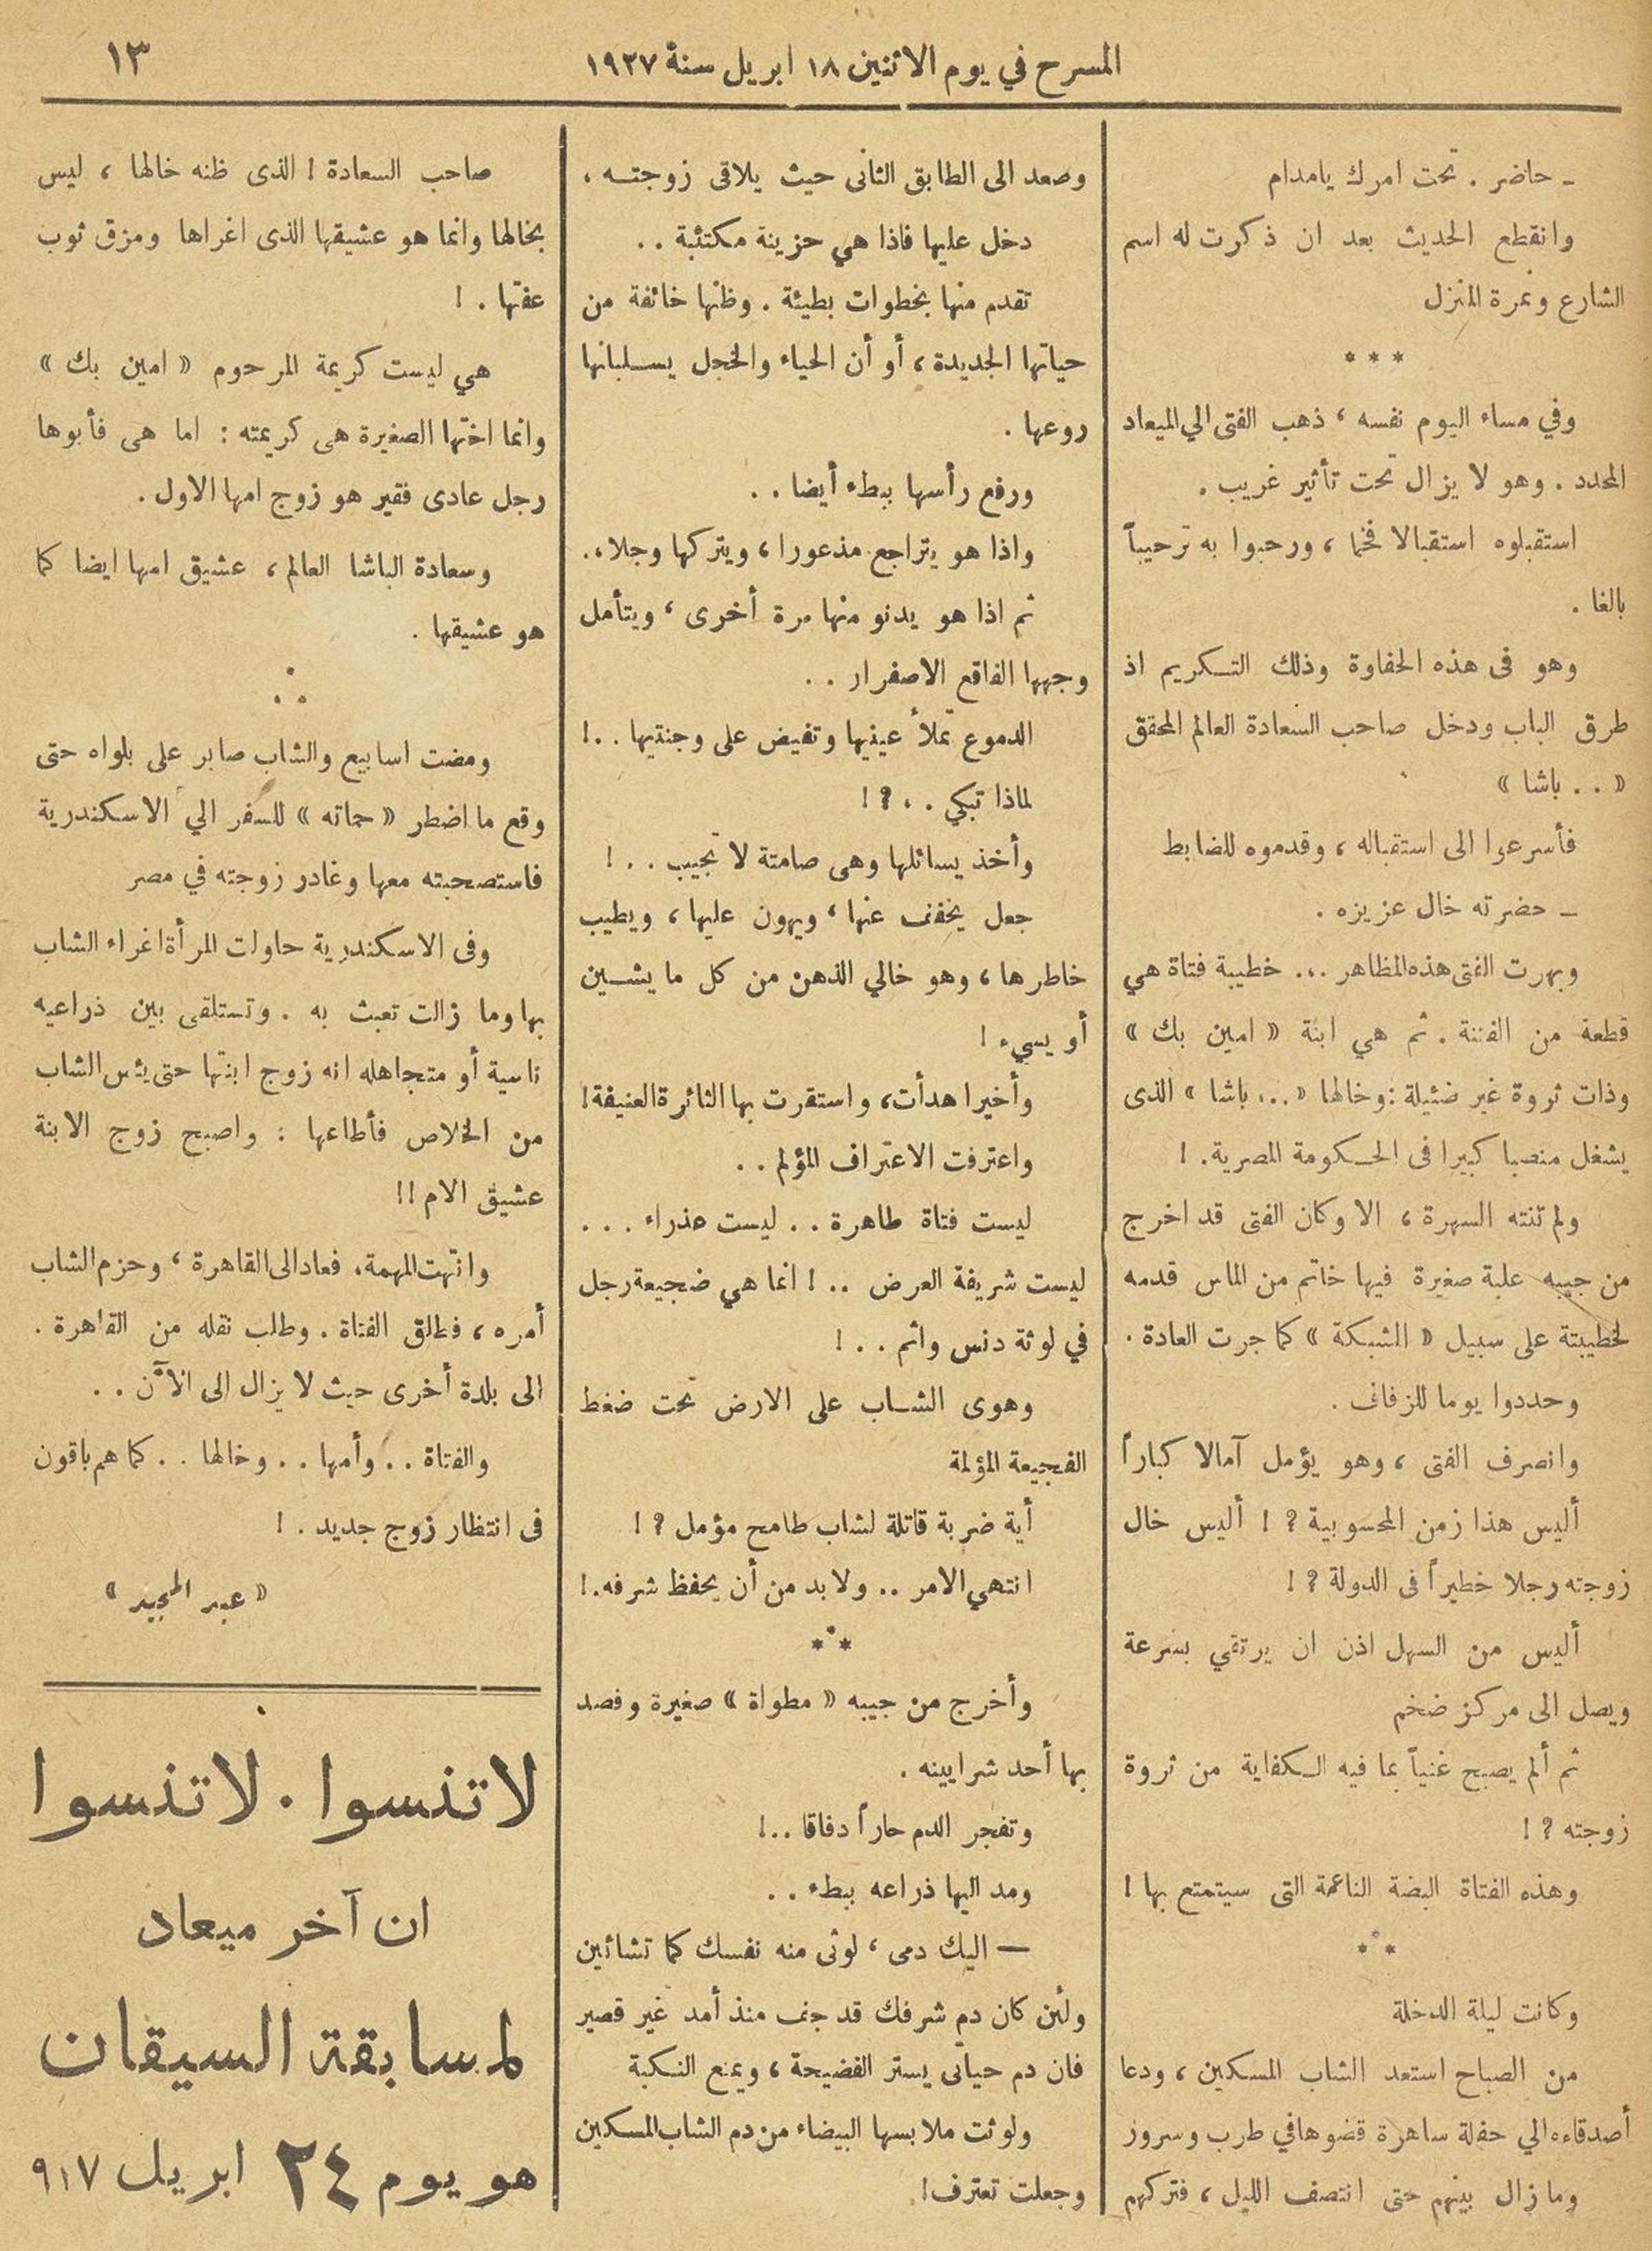 المسرح في يوم الاثنين ١٨ ابريل سنة ١٩٢٧
١٣
ـ حاضر . تحت امرك يامدام
وانقطع الحديث بعد ان ذكرت له اسم
الشارع ونمرة المنزل
* * *
وفي مساء اليوم نفسه ، ذهب الفتى الي الميعاد
المحدد . وهو لا يزال تحت تأثير غريب .
استقبلوه استقبالا فخما ، ورحبوا به ترحيباً
بالغا .
وهو فى هذه الحفاوة وذلك التكريم اذ
طرق الباب ودخل صاحب السعادة العالم المحقق
« . . باشا »
فأسرعوا الى استقباله ، وقدموه للضابط
ـ حضرته خال عزيزه .
وبهرت الفتى هذه المظاهر ... خطيبة فتاة هي
قطعة من الفتنة . ثم هي ابنة « امين بك »
وذات ثروة غير ضئيلة : وخالها « ... باشا » الذى
يشغل منصبا كبيرا فى الحكومة المصرية . !
ولم تنته السهرة ، الا وكان الفتى قد اخرج
من جيبه علبة صغيرة فيها خاتم من الماس قدمه
لخطيبتة على سبيل « الشبكة » كما جرت العادة .
وحددوا يوما للزفاف .
وانصرف الفتى ، وهو يؤمل آمالا كباراً
أليس هذا زمن المحسوبية ؟ ! أليس خال
زوجته رجلا خطيراً فى الدولة ؟ !
أليس من السهل اذن ان يرتقي بسرعة
ويصل الى مركز ضخم
ثم ألم يصبح غنياً بما فيه الكفاية من ثروة
زوجته ؟ !
وهذه الفتاة البضة الناعمة التى سيتمتع بها !
* * *
وكانت ليلة الدخلة
من الصباح استعد الشاب المسكين ، ودعا
أصدقاءه الي حفلة ساهرة قضوها في طرب وسرور
وما زال بينهم حتى انتصف الليل ، فتركهم
وصعد الى الطابق الثانى حيث يلاقى زوجته ،
دخل عليها فاذا هي حزينة مكتئبة . .
تقدم منها بخطوات بطيئة . وظنها خائفة من
حياتها الجديدة ، أو أن الحياء والخجل يسلبانها
روعها .
ورفع رأسها ببطء أيضا . .
واذا هو يتراجع مذعورا ، ويتركها وجلا . .
ثم اذا هو يدنو منها مرة أخرى ، ويتأمل
وجهها الفاقع الاصفرار . .
الدموع تملأ عينيها وتفيض على وجنتيها . . !
لماذا تبكي . . ؟ !
وأخذ يسائلها وهى صامتة لا تجيب . . !
جعل يخفف عنها ، ويهون عليها ، ويطيب
خاطرها ، وهو خالي الذهن من كل ما يشين
أو يسيء !
وأخيرا هدأت ، واستقرت بها الثائرة العنيفة !
واعترفت الاعتراف المؤلم . .
ليست فتاة طاهرة . . ليست عذراء . . .
ليست شريفة العرض . . ! انما هي ضجيعة رجل
في لوثة دنس واثم . . !
وهوى الشاب على الارض تحت ضغط
الفجيعة المؤلمة
أية ضربة قاتلة لشاب طامح مؤمل ؟ !
انتهي الامر . . ولا بد من أن يحفظ شرفه . !
* * *
وأخرج من جيبه « مطواة » صغيرة وفصد
بها أحد شرايينه .
وتفجر الدم حاراً دفاقا . . !
ومد اليها ذراعه ببطء . .
— اليك دمى ، لوثى منه نفسك كما تشائين
ولئن كان دم شرفك قد جف منذ أمد غير قصير
فان دم حياتى يستر الفضيحة ، ويمنع النكبة
ولوثت ملابسها البيضاء من دم الشاب المسكين
وجعلت تعترف !
صاحب السعادة ! الذى ظنه خالها ، ليس
بخالها وانما هو عشيقها الذى اغراها ومزق ثوب
عفتها . !
هي ليست كريمة المرحوم « امين بك »
وانما اختها الصغيرة هى كريمته : اما هى فأبوها
رجل عادى فقير هو زوج امها الاول .
وسعادة الباشا العالم ، عشيق امها ايضا كما
هو عشيقها .
ومضت اسابيع والشاب صابر على بلواه حتى
وقع ما اضطر « حماته » للسفر الي الاسكندرية
فاستصحبته معها وغادر زوجته في مصر
وفى الاسكندرية حاولت المرأة اغراء الشاب
بها وما زالت تعبث به . وتستلقى بين ذراعيه
ناسية أو متجاهله انه زوج ابنتها حتى يئس الشاب
من الخلاص فأطاعها : واصبح زوج الابنة
عشيق الام !!
وانتهت المهمة ، فعاد الى القاهرة ، وحزم الشاب
أمره ، فطلق الفتاة . وطلب نقله من القاهرة .
الى بلدة أخرى حيث لا يزال الى الآن . .
والفتاة . . وأمها . . وخالها . . كما هم باقون
فى انتظار زوج جديد . !
« عبد المجيد »
لا تنسوا . لا تنسوا
ان آخر ميعاد
لمسابقة السيقان
هو يوم ٢٤ ابريل ٩١٧